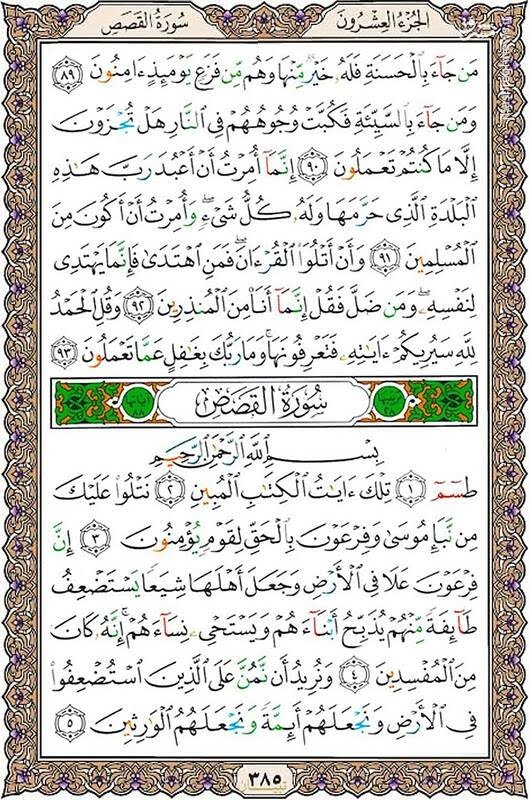 الجزء العشرون
سورة القصص
مَن جَآءَ بِٱلْحَسَنَةِ فَلَهُۥ خَيْرٌ مِّنْهَا وَهُم مِّن فَزَعٍ يَوْمَئِذٍ ءَامِنُونَ ﴿٨٩﴾
وَمَن جَآءَ بِٱلسَّيِّئَةِ فَكُبَّتْ وُجُوهُهُمْ فِى ٱلنَّارِ هَلْ تُجْزَوْنَ
إِلَّا مَا كُنتُمْ تَعْمَلُونَ ﴿٩٠﴾ إِنَّمَآ أُمِرْتُ أَنْ أَعْبُدَ رَبَّ هَٰذِهِ
ٱلْبَلْدَةِ ٱلَّذِى حَرَّمَهَا وَلَهُۥ كُلُّ شَىْءٍ ۖ وَأُمِرْتُ أَنْ أَكُونَ مِنَ
ٱلْمُسْلِمِينَ ﴿٩١﴾ وَأَنْ أَتْلُوَا۟ ٱلْقُرْءَانَ ۖ فَمَنِ ٱهْتَدَىٰ فَإِنَّمَا يَهْتَدِى
لِنَفْسِهِۦ ۖ وَمَن ضَلَّ فَقُلْ إِنَّمَآ أَنَا۠ مِنَ ٱلْمُنذِرِينَ ﴿٩٢﴾ وَقُلِ ٱلْحَمْدُ
لِلَّهِ سَيُرِيكُمْ ءَايَٰتِهِۦ فَتَعْرِفُونَهَا ۚ وَمَا رَبُّكَ بِغَٰفِلٍ عَمَّا تَعْمَلُونَ ﴿٩٣﴾
سُورَةُ القَصَصِ
بِسْمِ ٱللَّهِ ٱلرَّحْمَٰنِ ٱلرَّحِيمِ
طسٓمٓ ﴿١﴾ تِلْكَ ءَايَٰتُ ٱلْكِتَٰبِ ٱلْمُبِينِ ﴿٢﴾ نَتْلُوا۟ عَلَيْكَ
مِن نَّبَإِ مُوسَىٰ وَفِرْعَوْنَ بِٱلْحَقِّ لِقَوْمٍ يُؤْمِنُونَ ﴿٣﴾ إِنَّ
فِرْعَوْنَ عَلَا فِى ٱلْأَرْضِ وَجَعَلَ أَهْلَهَا شِيَعًا يَسْتَضْعِفُ
طَآئِفَةً مِّنْهُمْ يُذَبِّحُ أَبْنَآءَهُمْ وَيَسْتَحْىِۦ نِسَآءَهُمْ ۚ إِنَّهُۥ كَانَ
مِنَ ٱلْمُفْسِدِينَ ﴿٤﴾ وَنُرِيدُ أَن نَّمُنَّ عَلَى ٱلَّذِينَ ٱسْتُضْعِفُوا۟
فِى ٱلْأَرْضِ وَنَجْعَلَهُمْ أَئِمَّةً وَنَجْعَلَهُمُ ٱلْوَٰرِثِينَ ﴿٥﴾
٣٨٥